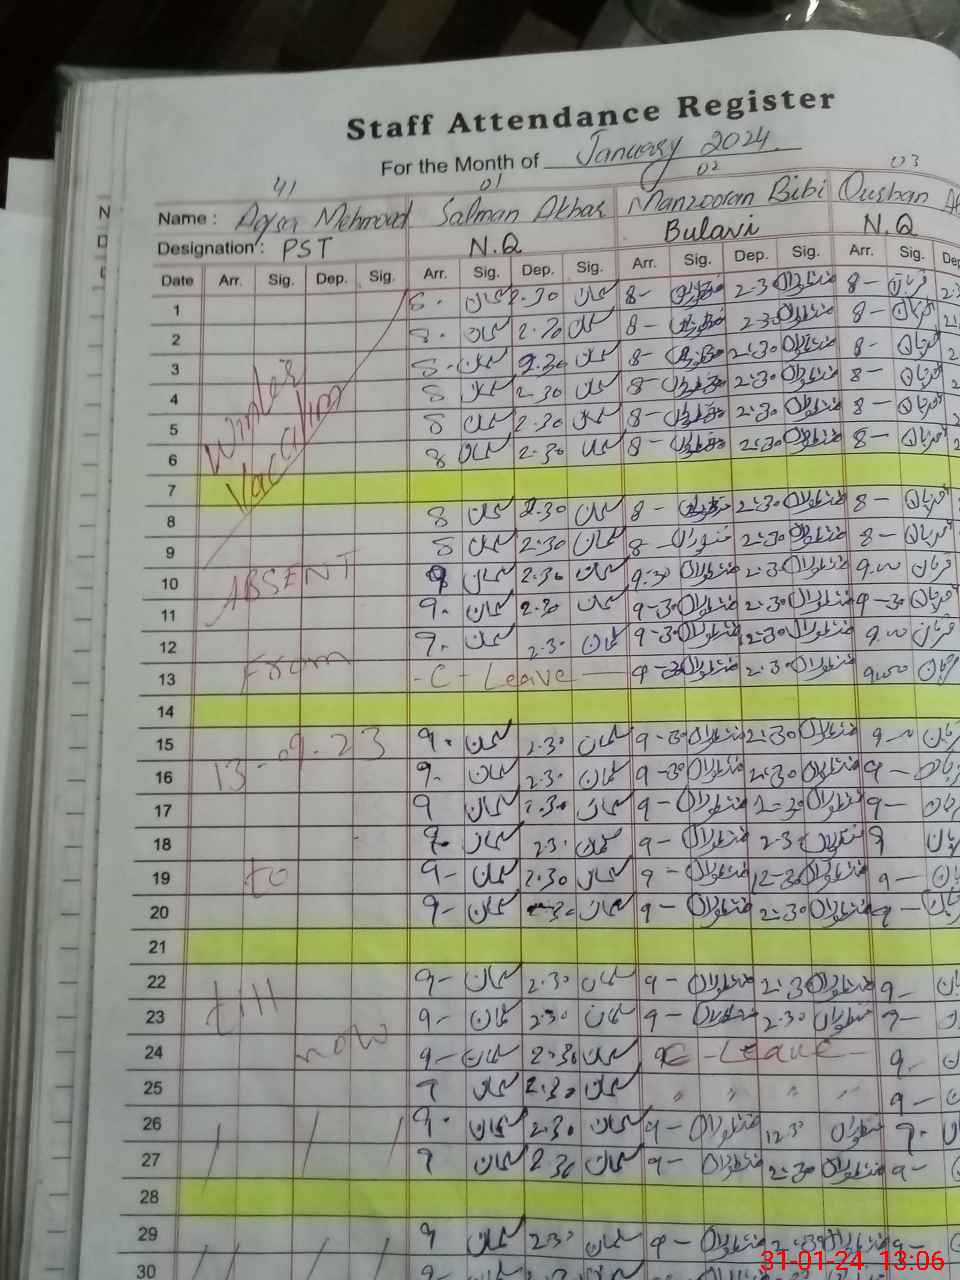 Staff Attendance Register
For the Month of January 2024
41 01 02 03
Name : Aqsa Mehmood Salman Akbar Manzooran Bibi Qurban
Designation : PST N.Q Bulavi N.Q
Date Arr. Sig. Dep. Sig. Arr. Sig. Dep. Sig. Arr. Sig. Dep. Sig. Arr. Sig. Dep
1 8- سلمان 2.30 سلمان 8- منظوراں 2:30 منظوراں 8- قربان
2 8- سلمان 2.30 سلمان 8- منظوراں 2:30 منظوراں 8- قربان
3 8- سلمان 2.30 سلمان 8- منظوراں 2:30 منظوراں 8- قربان
4 8 سلمان 2.30 سلمان 8- منظوراں 2:30 منظوراں 8- قربان
5 8 سلمان 2.30 سلمان 8- منظوراں 2:30 منظوراں 8- قربان
6 8 سلمان 2.30 سلمان 8- منظوراں 2:30 منظوراں 8- قربان
Winter
Vacation
7
8 8 سلمان 2.30 سلمان 8- منظوراں 2:30 منظوراں 8- قربان
9 8 سلمان 2:30 سلمان 8- منظوراں 2:30 منظوراں 8- قربان
10 ABSENT 9 سلمان 2.30 سلمان 9-30 منظوراں 2:30 منظوراں 9.00 قربان
11 9- سلمان 2.30 سلمان 9-30 منظوراں 2:30 منظوراں 9-30 قربان
12 9- سلمان 2.30 سلمان 9-30 منظوراں 2:30 منظوراں 9.00 قربان
13 From - C - Leave - 9-30 منظوراں 2:30 منظوراں 9.00 قربان
14
15 9- سلمان 2.30 سلمان 9-30 منظوراں 2:30 منظوراں 9- قربان
16 13-09-23 9- سلمان 2.30 سلمان 9-30 منظوراں 2:30 منظوراں 9-
17 9 سلمان 2.30 سلمان 9- منظوراں 2-30 منظوراں 9-
18 9- سلمان 2.30 سلمان 9- منظوراں 2-30 منظوراں 9
19 to 9- سلمان 2.30 سلمان 9- منظوراں 2-30 منظوراں 9-
20 9- سلمان 2.30 سلمان 9- منظوراں 2:30 منظوراں 9-
21
22 9- سلمان 2.30 سلمان 9- منظوراں 2:30 منظوراں 9-
23 till 9- سلمان 2.30 سلمان 9- منظوراں 2.30 منظوراں 9-
24 now 9- سلمان 2.30 سلمان C - Leave - 9-
25 9 سلمان 2.30 سلمان " " " " 9-
26 9- سلمان 2.30 سلمان 9- منظوراں 2:30 منظوراں 9-
27 9 سلمان 2.30 سلمان 9- منظوراں 2:30 منظوراں 9-
28
29 9 سلمان 2.30 سلمان 9- منظوراں منظوراں 9-
30
31-01-24 13:06